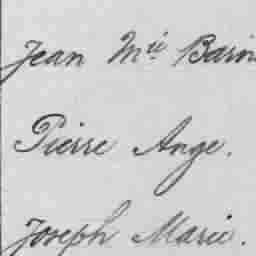 Jean Mie Barin
Pierre Ange.
Joseph Marie.